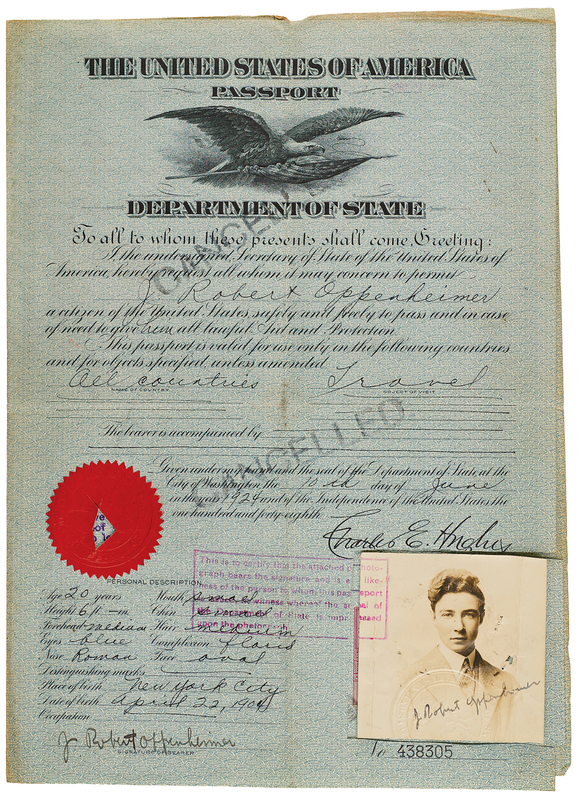 THE UNITED STATES OF AMERICA
PASSPORT
DEPARTMENT OF STATE
To all to whom these presents shall come, Greeting:
I the undersigned, Secretary of State of the United States of
America, hereby request all whom it may concern to permit
J Robert Oppenheimer
a citizen of the United States, safely and freely to pass and in case
of need to give him all lawful Aid and Protection.
This passport is valid for use only in the following countries
and for objects specified, unless amended
All countries Travel
NAME OF COUNTRY OBJECT OF VISIT
The bearer is accompanied by
CANCELLED
CANCELLED
Given under my hand and the seal of the Department of State at the
City of Washington the 10th day of June
in the year 1924 and of the Independence of the United States the
one hundred and forty-eighth.
Charles E. Hughes
PERSONAL DESCRIPTION
Age 20 years Mouth small
Height 6 ft — in. Chin
Forehead medium Hair medium
Eyes blue Complexion
Nose Roman Face oval
Distinguishing marks
Place of birth New York City
Date of birth April 22, 1904
Occupation
J Robert Oppenheimer
SIGNATURE OF BEARER
This is to certify that the attached photo-
graph bears the signature and is a like-
ness of the person to whom this passport
witness whereof the seal of
of State is impressed
upon the photograph
J Robert Oppenheimer
No 438305